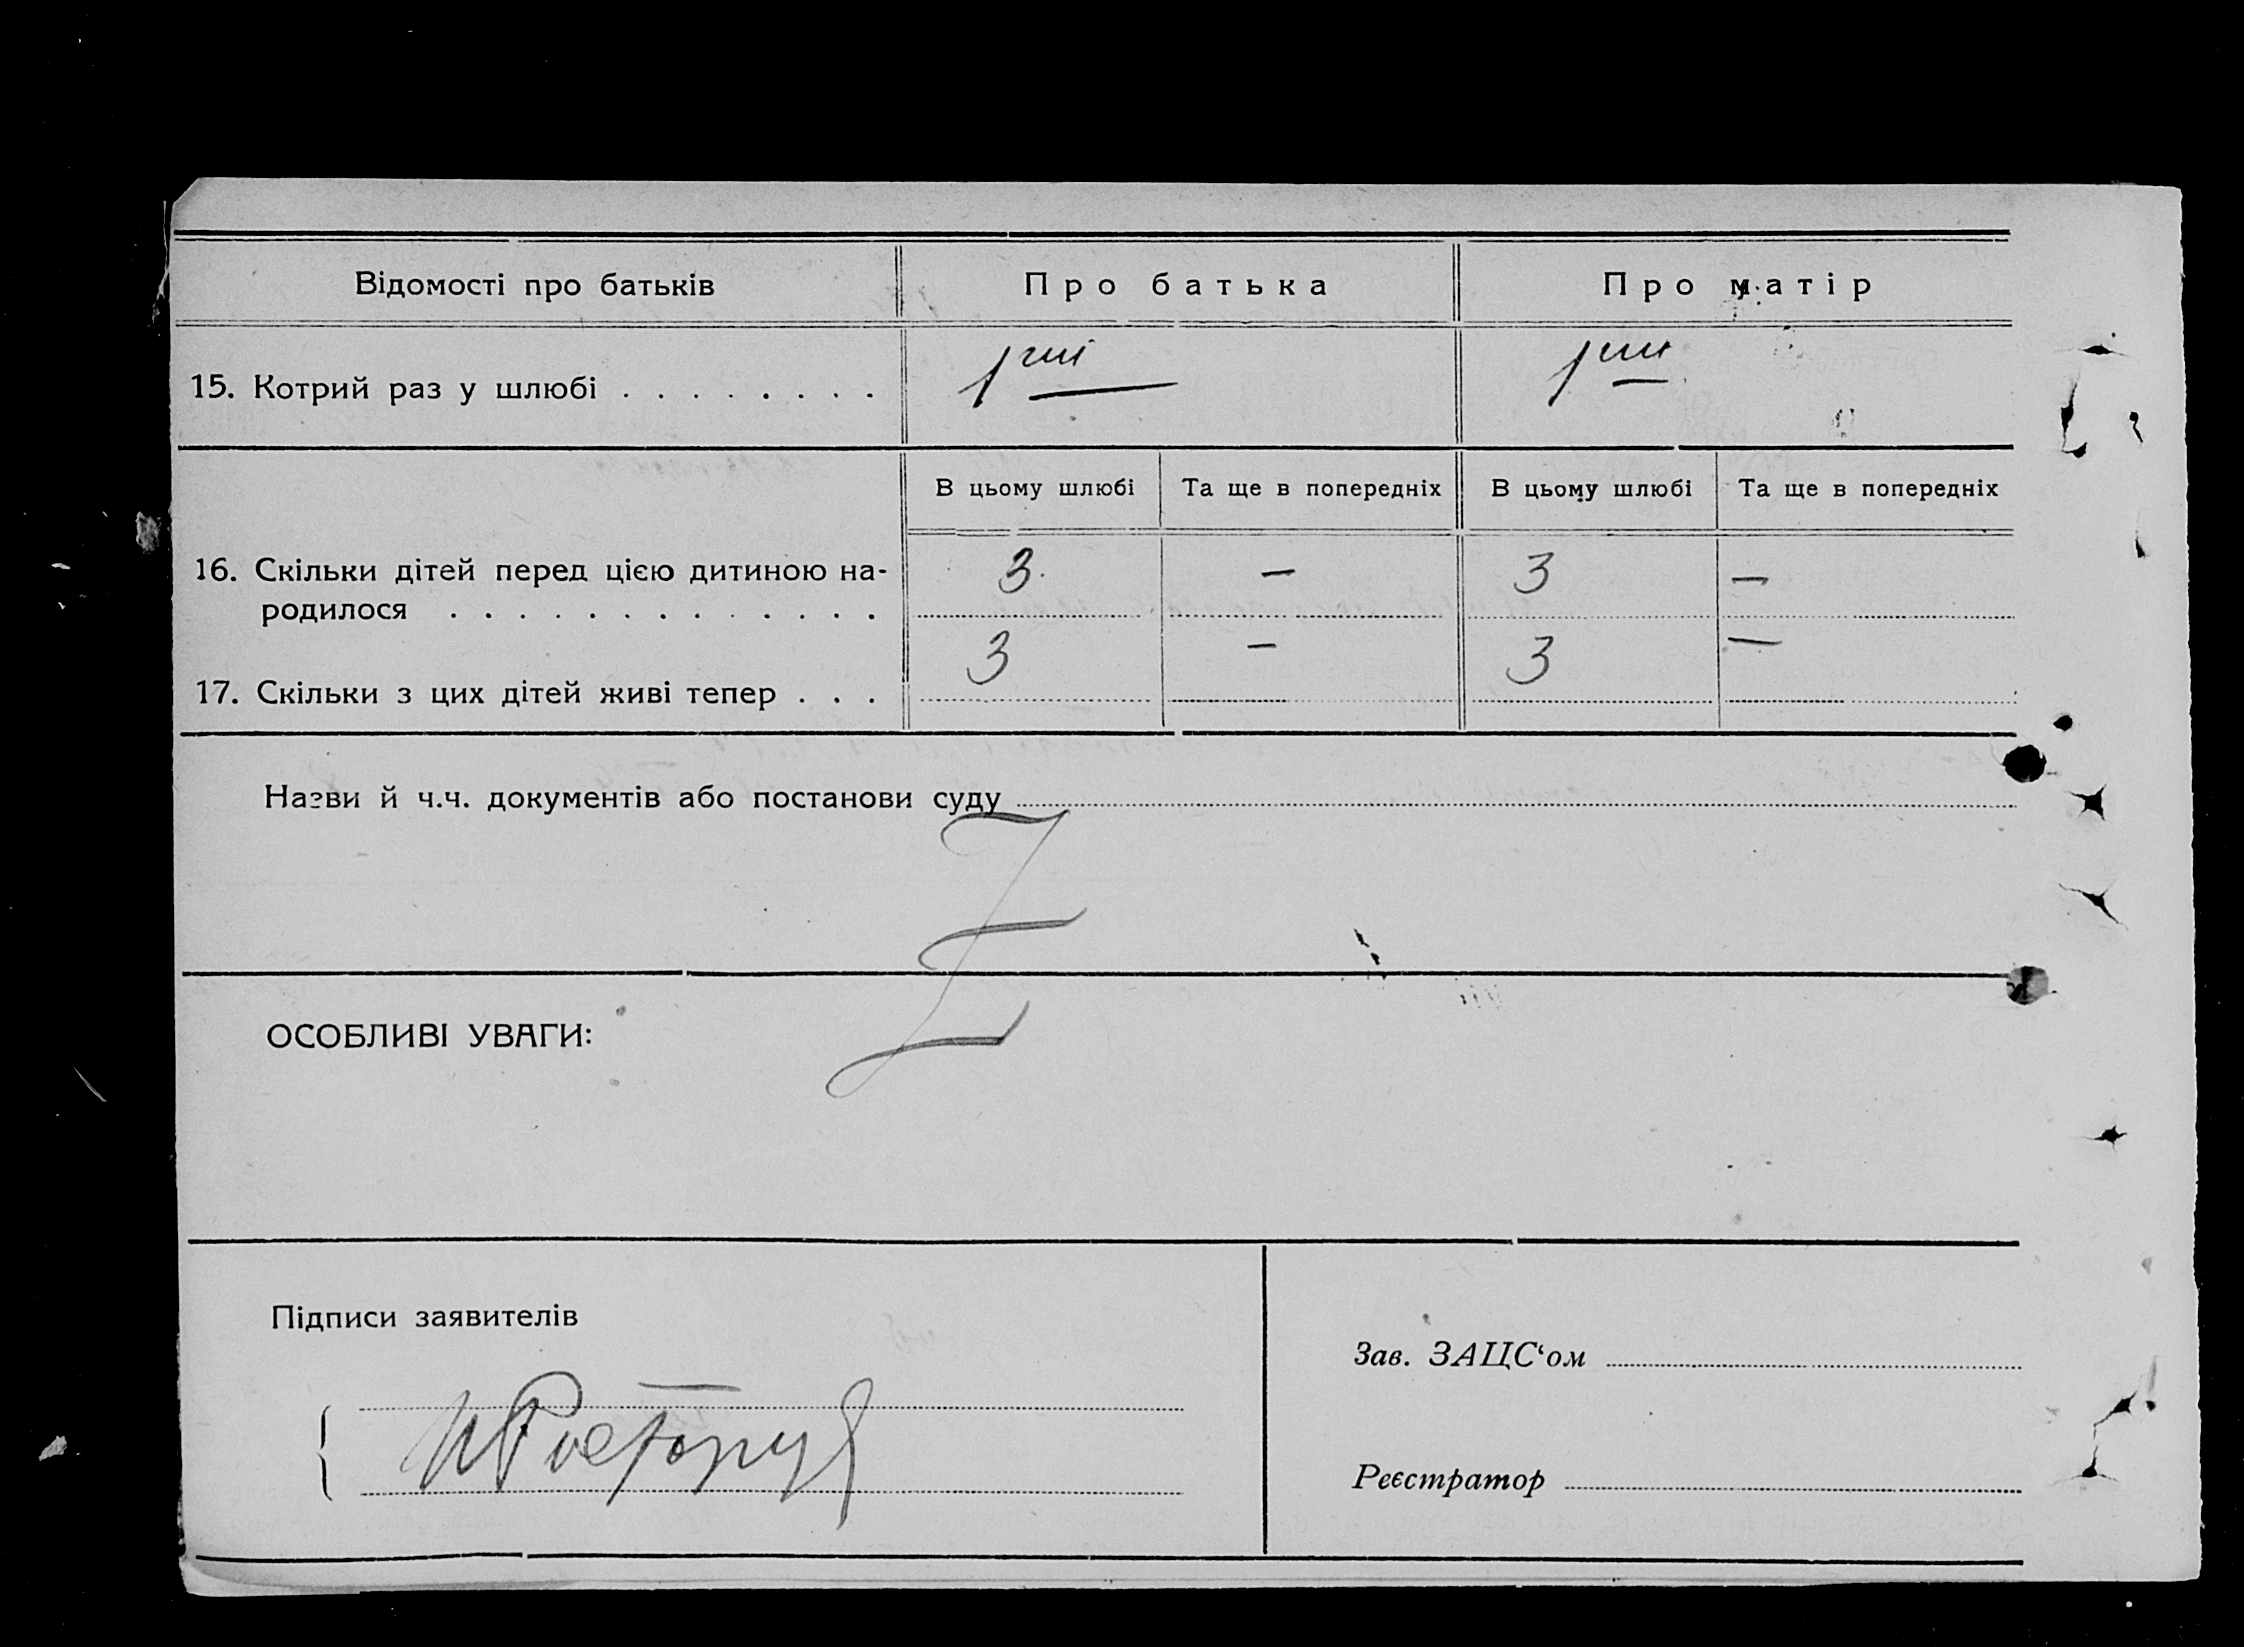 Відомості про батьків
Про батька
Про матір
15. Котрий раз у шлюбі . . . . . . . .
1
1
В цьому шлюбі
Та ще в попередніх
В цьому шлюбі
Та ще в попередніх
16. Скільки дітей перед цією дитиною на-
родилося . . . . . . . . . . . . .
3
—
3
—
17. Скільки з цих дітей живі тепер . . .
3
—
3
—
Назви й ч.ч. документів або постанови суду
ОСОБЛИВІ УВАГИ:
Підписи заявителів
Зав. ЗАЦС‘ом
Реєстратор